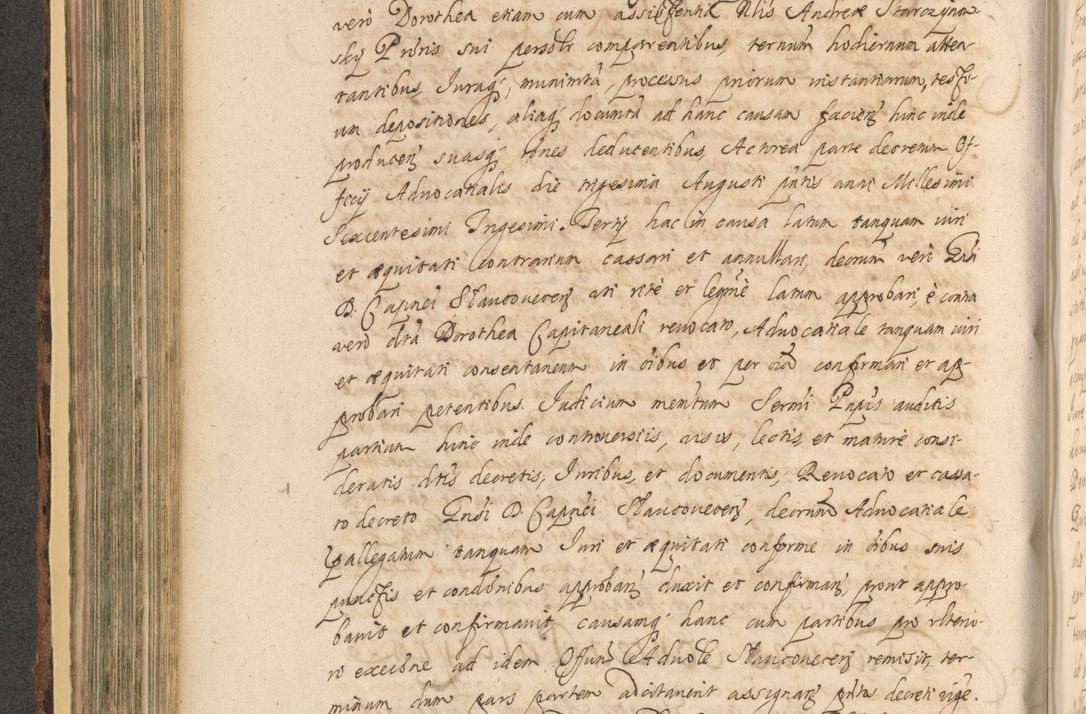 verò Dorothea etiam cum assistentia Nlis Andreæ Starczynow
skÿ Pnris sui persolr comparentibus, ternum hodiernum atten
tantibus, Juraq; munimta, processus priorum instantiarum, testi-
um depositiones, aliaq; documta ad hanc causam facien hinc inde
producen suasq; rônes deducentibus, Actorea parte decretum Of-
ficÿ Advocatialis die trigesima Augusti pntis anni Millesimi
Sexcentesimi Trigesimi Tertÿ hac in causa latum tanquam iuri
et æquitati contrarium cassari et annullari, decretum verò Gnsi
D. Capnei Slauconecen uti ritè et legmè latum approbari, è contra
verò dta Dorothea Capitaneali revocato, Advocatiale tanquam iuri
et æquitati consentaneum in oîbus et per oîa confirmari et ap-
probari petentibus. Judicium memtum Sermi Pnpis auditis
partium hinc inde controversiis, visis, lectis et maturè consi-
deratis dtis decretis, Juribus, et documentis, Revocato et cassa-
to decreto Gnsi D. Capnei Slauconecen, decretum Advocatiale
allegatum tanquam Juri et æquitati conforme in oîbus suis
punctis et condônibus approban duxit et confirman, prout appro-
bavit et confirmavit causamq; hanc cum partibus pro ulterio-
ri execône ad idem Offium Advole Slauconecen remisit, ter-
minum dum pars partem adcitaverit assignan pntis decreti vige.